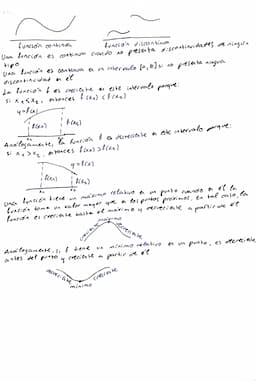 función continua función discontinua
Una función es continua cuando no presenta discontinuidades de ningún
tipo
Una función es continua en un intervalo [a,b] si no presenta ninguna
discontinuidad en él
La función f es creciente en este intervalo porque:
si x₁≤x₂, entonces f(x₁)<f(x₂)
y=f(x)
f(x₁) f(x₂)
Análogamente, la función f es decreciente en este intervalo porque:
si x₁>x₂, entonces f(x₁)>f(x₂)
y=f(x)
f(x₁) f(x₂)
x₁ x₂
Una función tiene un máximo relativo en un punto cuando en él la
función toma un valor mayor que en los puntos próximos, en tal caso, la
función es creciente hasta el máximo y decreciente a partir de él
máximo
creciente decreciente
Análogamente, si f tiene un mínimo relativo en un punto, es decreciente
antes del punto y creciente a partir de él
decreciente creciente
mínimo